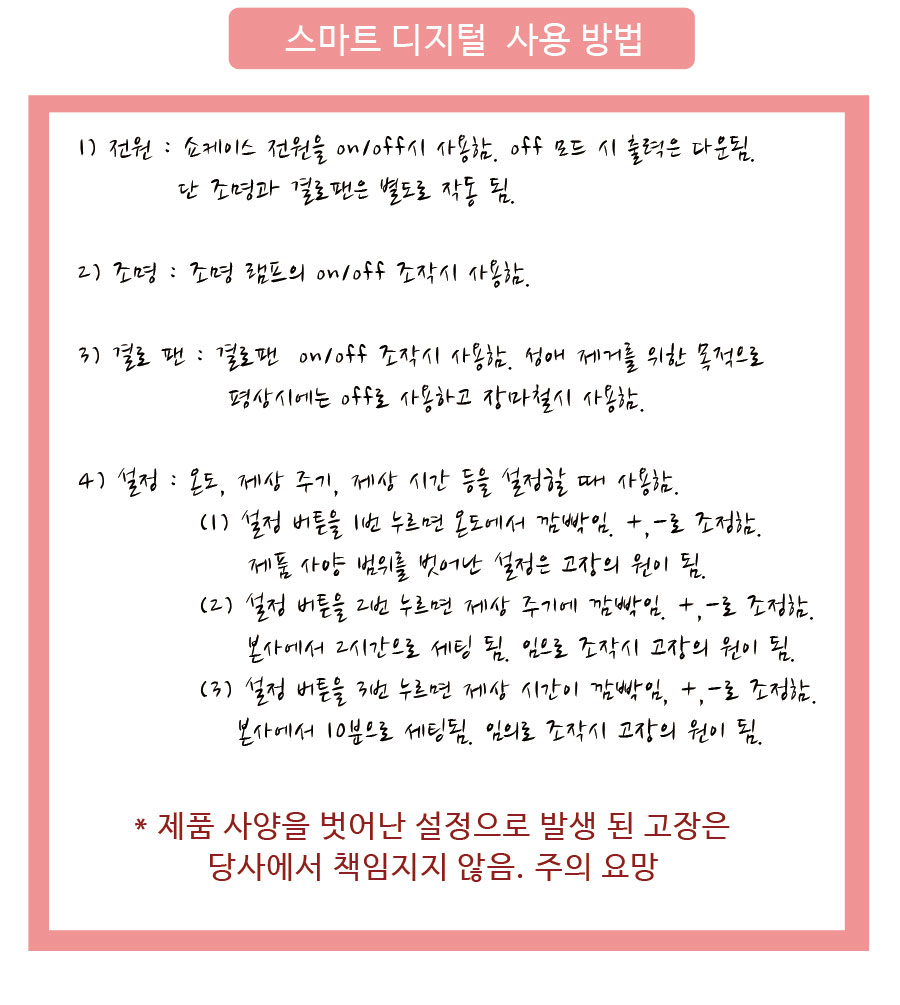 스마트 디지털 사용 방법
1) 전원 : 쇼케이스 전원을 on/off시 사용함. off 모드 시 출력은 다운됨.
단 조명과 결로팬은 별도로 작동 됨.
2) 조명 : 조명 램프의 on/off 조작시 사용함.
3) 결로 팬 : 결로팬 on/off 조작시 사용함. 성애 제거를 위한 목적으로
평상시에는 off로 사용하고 장마철시 사용함.
4) 설정 : 온도, 제상 주기, 제상 시간 등을 설정할 때 사용함.
(1) 설정 버튼을 1번 누르면 온도에서 깜빡임. +,-로 조정함.
제품 사양 범위를 벗어난 설정은 고장의 원이 됨.
(2) 설정 버튼을 2번 누르면 제상 주기에 깜빡임. +,-로 조정함.
본사에서 2시간으로 세팅 됨. 임으로 조작시 고장의 원이 됨.
(3) 설정 버튼을 3번 누르면 제상 시간이 깜빡임, +,-로 조정함.
본사에서 10분으로 세팅됨. 임의로 조작시 고장의 원이 됨.
* 제품 사양을 벗어난 설정으로 발생 된 고장은
당사에서 책임지지 않음. 주의 요망